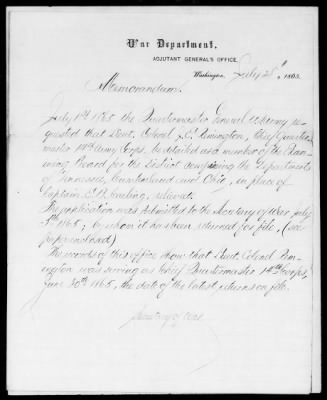 War Department,
ADJUTANT GENERAL'S OFFICE,
Washington, July 25", 1865.
Memorandum:
July 1st 1865 the Quartermaster General of the Army re-
quested that Lieut. Colonel J. E. Remington, Chief Quarter-
master 14th Army Corps, be detailed as a member of the Exam-
ining Board for the District comprising the Departments
of Tennessee, Cumberland and Ohio, in place of
Captain E. B. relieved.
The application was submitted to the Secretary of War July
5th 1865, by whom it has been returned for file, (see
paper enclosed)
The records of this office show that Lieut. Colonel Rem-
ington was serving as Chief Quartermaster 14th Corps,
June 30th 1865, the date of the latest returns on file.
Secretary of War